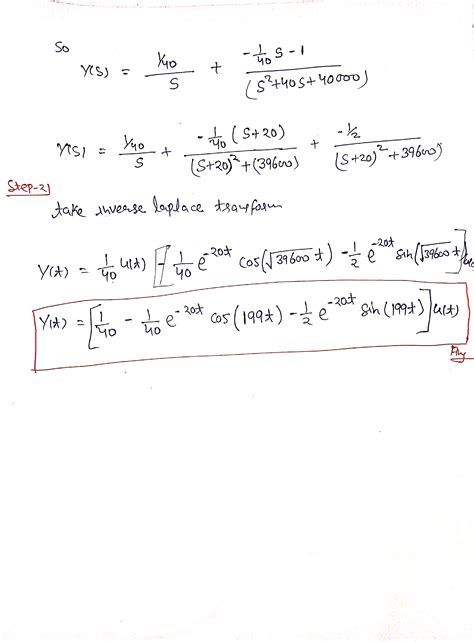 So
Y(S) = 1/40 / S + (-1/40 S - 1) / (S²+40S+40000)
Y(S) = 1/40 / S + -1/40 (S+20) / (S+20)²+(39600) + -1/2 / (S+20)²+39600)
Step-2)
take inverse laplace transform
Y(t) = 1/40 u(t) [- 1/40 e^-20t cos(√39600 t) - 1/2 e^-20t sin(√39600 t)] u(t)
Y(t) = [1/40 - 1/40 e^-20t cos(199t) - 1/2 e^-20t sin(199t)] u(t)